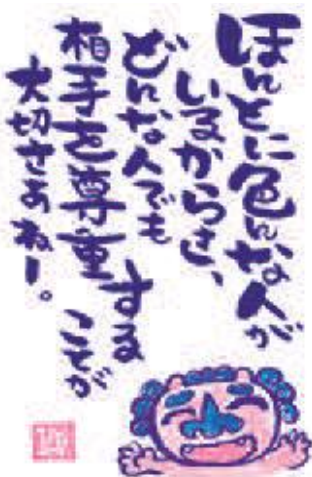 ほんとに色んな人が
いるからさ、
どんな人でも
相手を尊重することが
大切さぁねー。